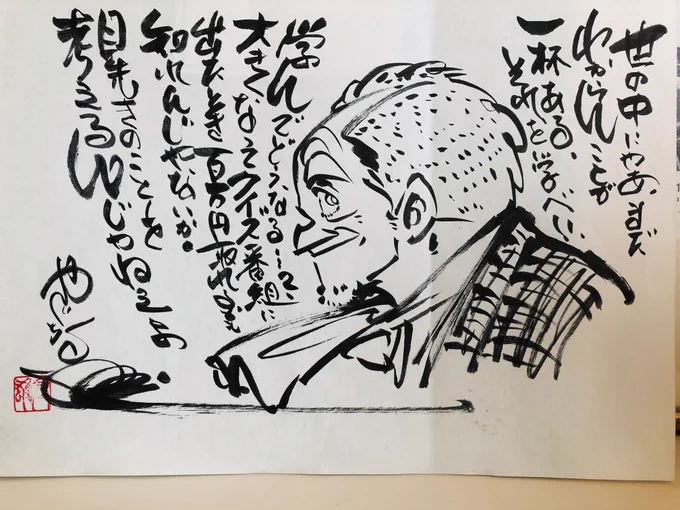 世の中にゃあ、まだ
わからんことが
一杯ある、
それを学べい、
学んでどうなる…
大きくなってクイズ番組に
出たとき百万円
知れんじゃないか。
目先きのことを
考えるんじゃねえよ